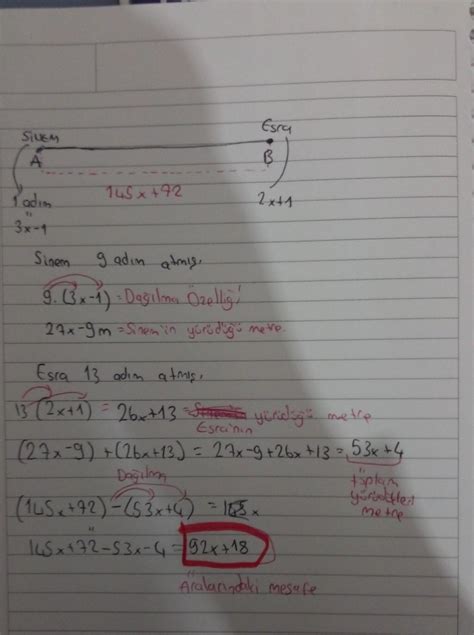 Sinem Esra
A B
145x+72
1 adım 2x+1
"
3x-1
Sinem 9 adım atmış.
9.(3x-1) = Dağılma Özelliği
27x-9m = Sinem'in yürüdüğü metre.
Esra 13 adım atmış.
13(2x+1) = 26x+13 = Esra'nın yürüdüğü metre
(27x-9)+(26x+13) = 27x-9+26x+13 = 53x+4
Dağılma
toplam yürüdükleri metre
(145x+72)-(53x+4) = 145x
"
145x+72-53x-4 = 92x+18
Aralarındaki mesafe